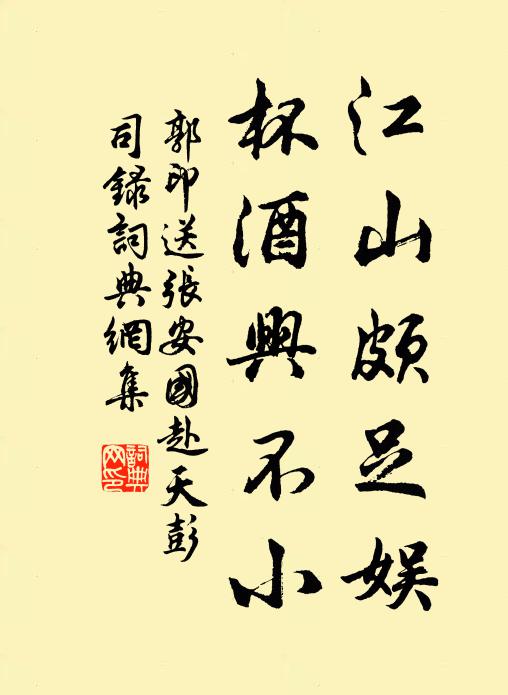 江山頗足娛
杯酒興不小
郭印送張安國赴天彭
司錄詞典網集
詞典网印